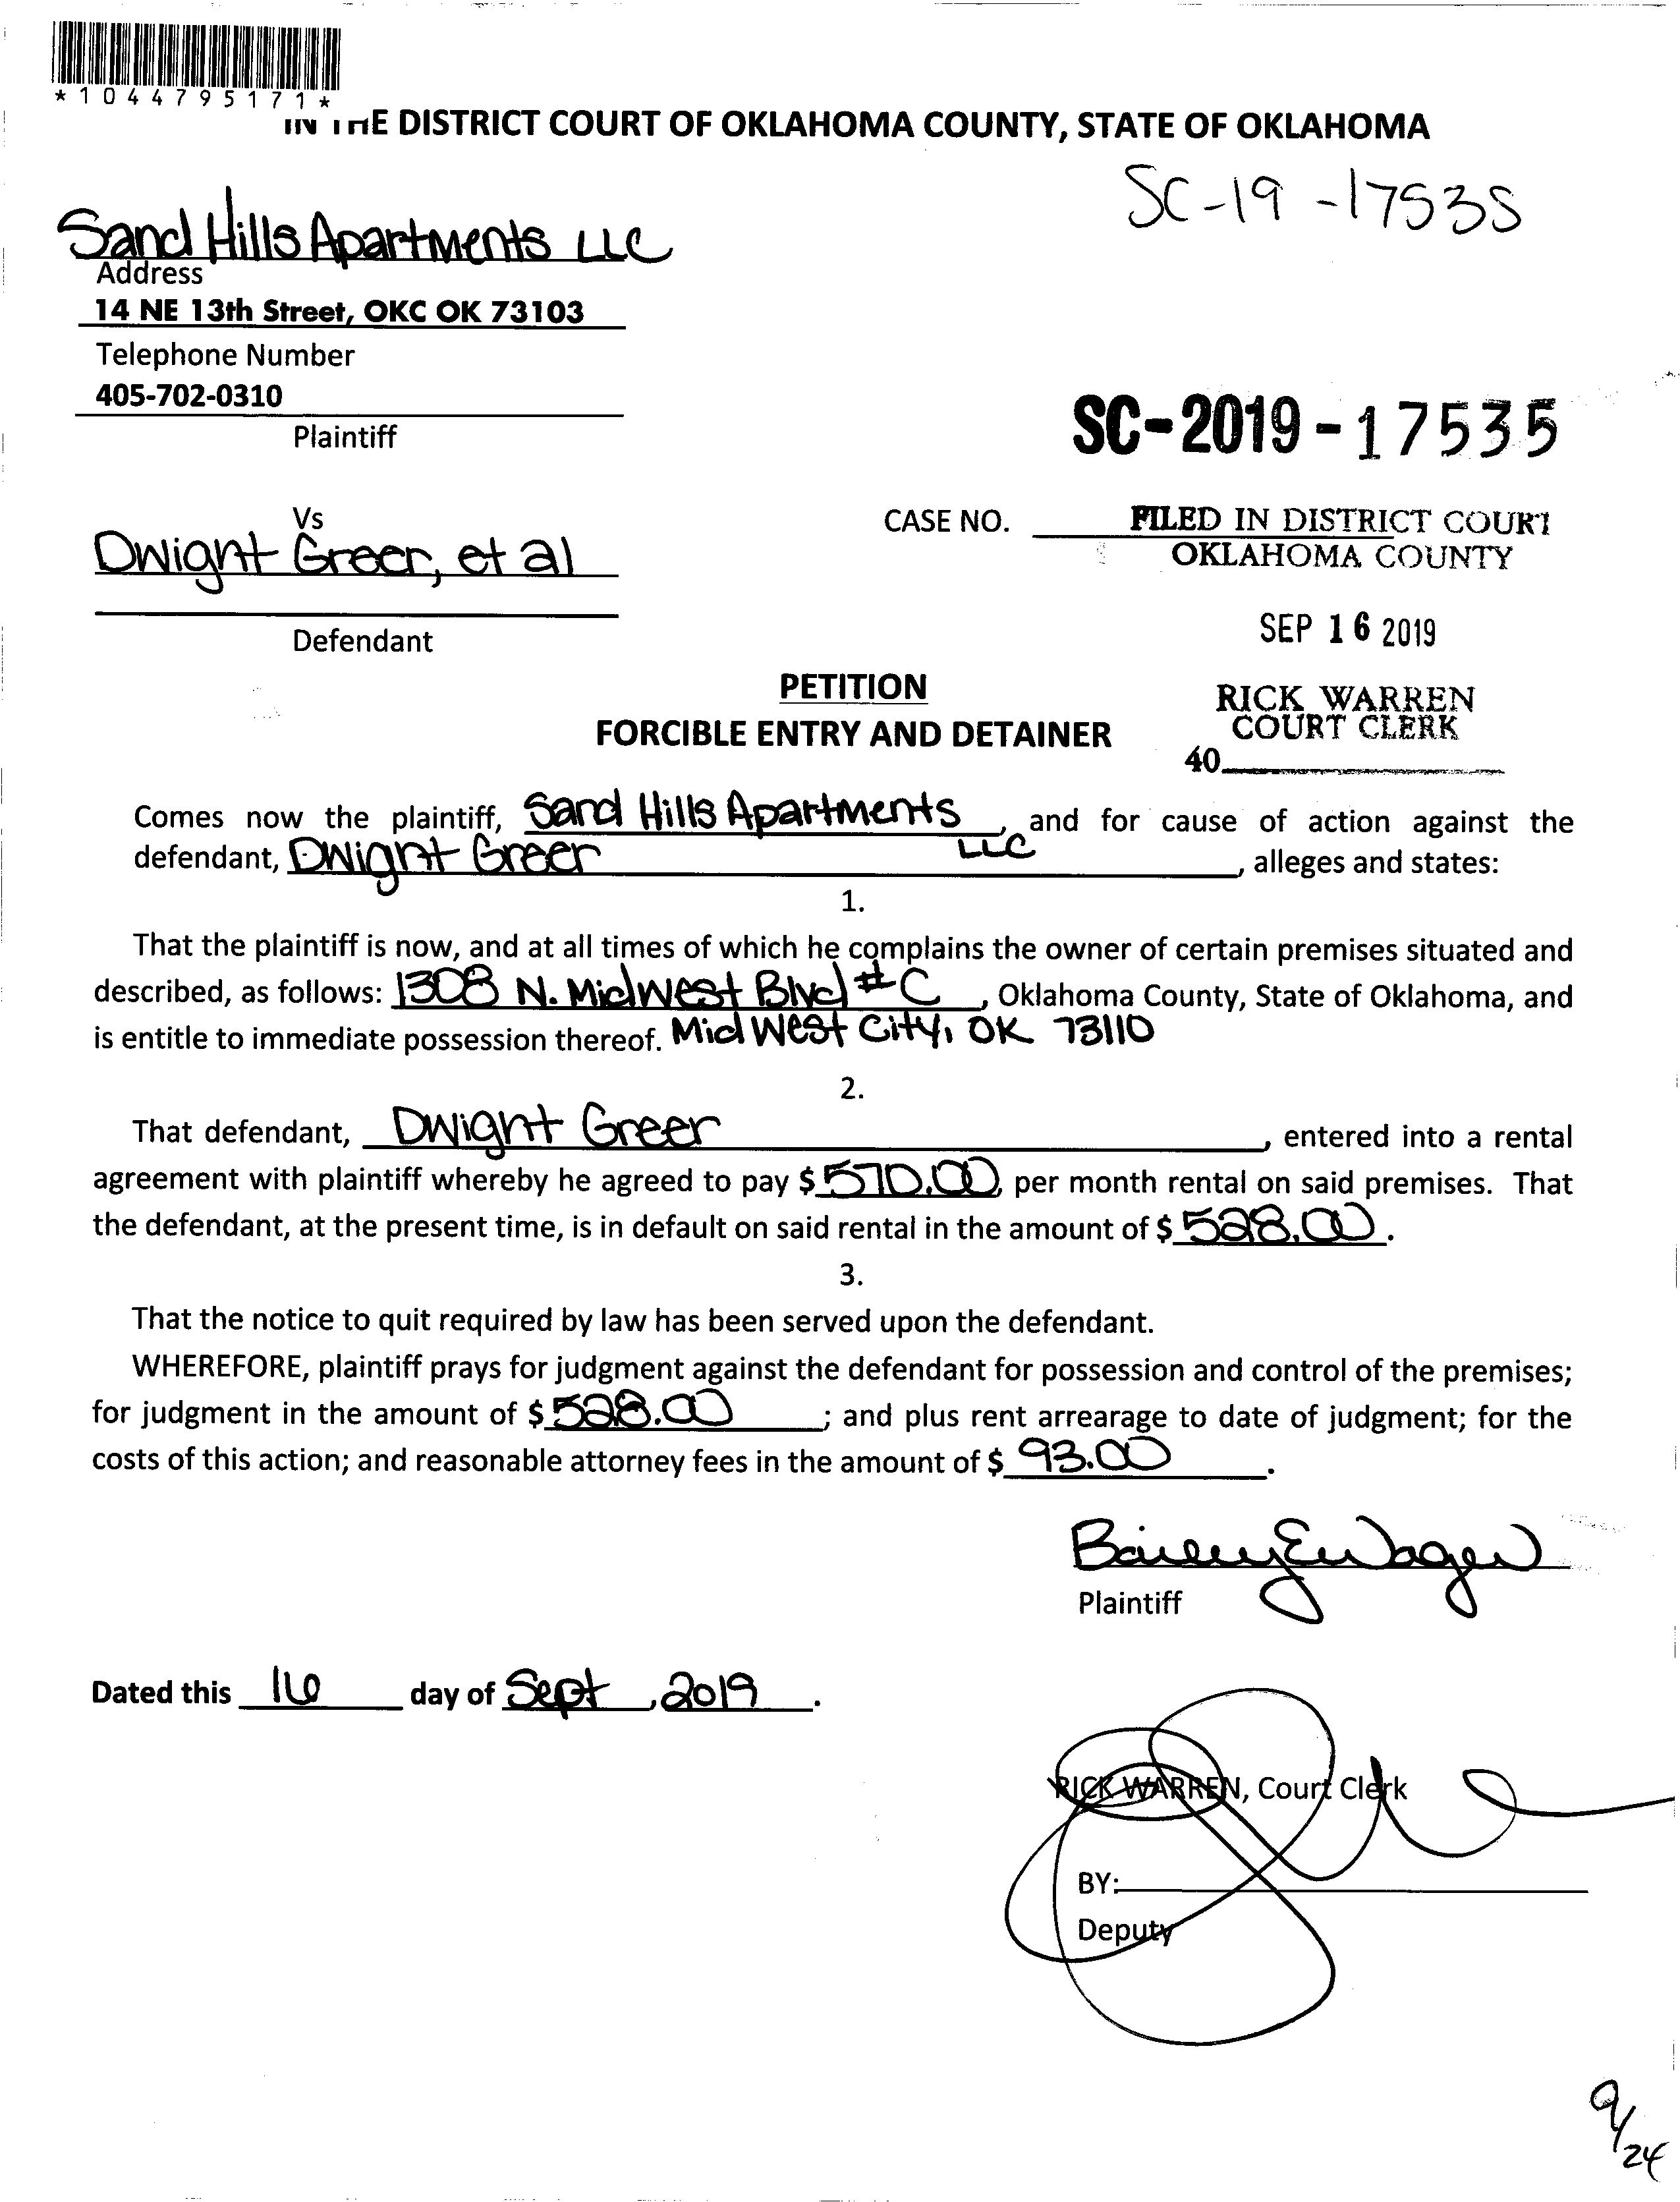 *1044795171*
IN THE DISTRICT COURT OF OKLAHOMA COUNTY, STATE OF OKLAHOMA
SC-19-17535
Sand Hills Apartments LLC
Address
14 NE 13th Street, OKC OK 73103
Telephone Number
405-702-0310
Plaintiff
SC-2019-17535
Vs
CASE NO.
FILED IN DISTRICT COURT
OKLAHOMA COUNTY
Dwight Greer, et al
Defendant
SEP 16 2019
PETITION
FORCIBLE ENTRY AND DETAINER
RICK WARREN
COURT CLERK
40
Comes now the plaintiff, Sand Hills Apartments LLC, and for cause of action against the
defendant, Dwight Greer, alleges and states:
1.
That the plaintiff is now, and at all times of which he complains the owner of certain premises situated and
described, as follows: 1308 N. Midwest Blvd #C, Oklahoma County, State of Oklahoma, and
is entitle to immediate possession thereof. Midwest City, OK 73110
2.
That defendant, Dwight Greer, entered into a rental
agreement with plaintiff whereby he agreed to pay $570.00, per month rental on said premises. That
the defendant, at the present time, is in default on said rental in the amount of $528.00.
3.
That the notice to quit required by law has been served upon the defendant.
WHEREFORE, plaintiff prays for judgment against the defendant for possession and control of the premises;
for judgment in the amount of $528.00; and plus rent arrearage to date of judgment; for the
costs of this action; and reasonable attorney fees in the amount of $93.00.
Plaintiff
Dated this 16 day of Sept, 2019.
RICK WARREN, Court Clerk
BY:
Deputy
9/24